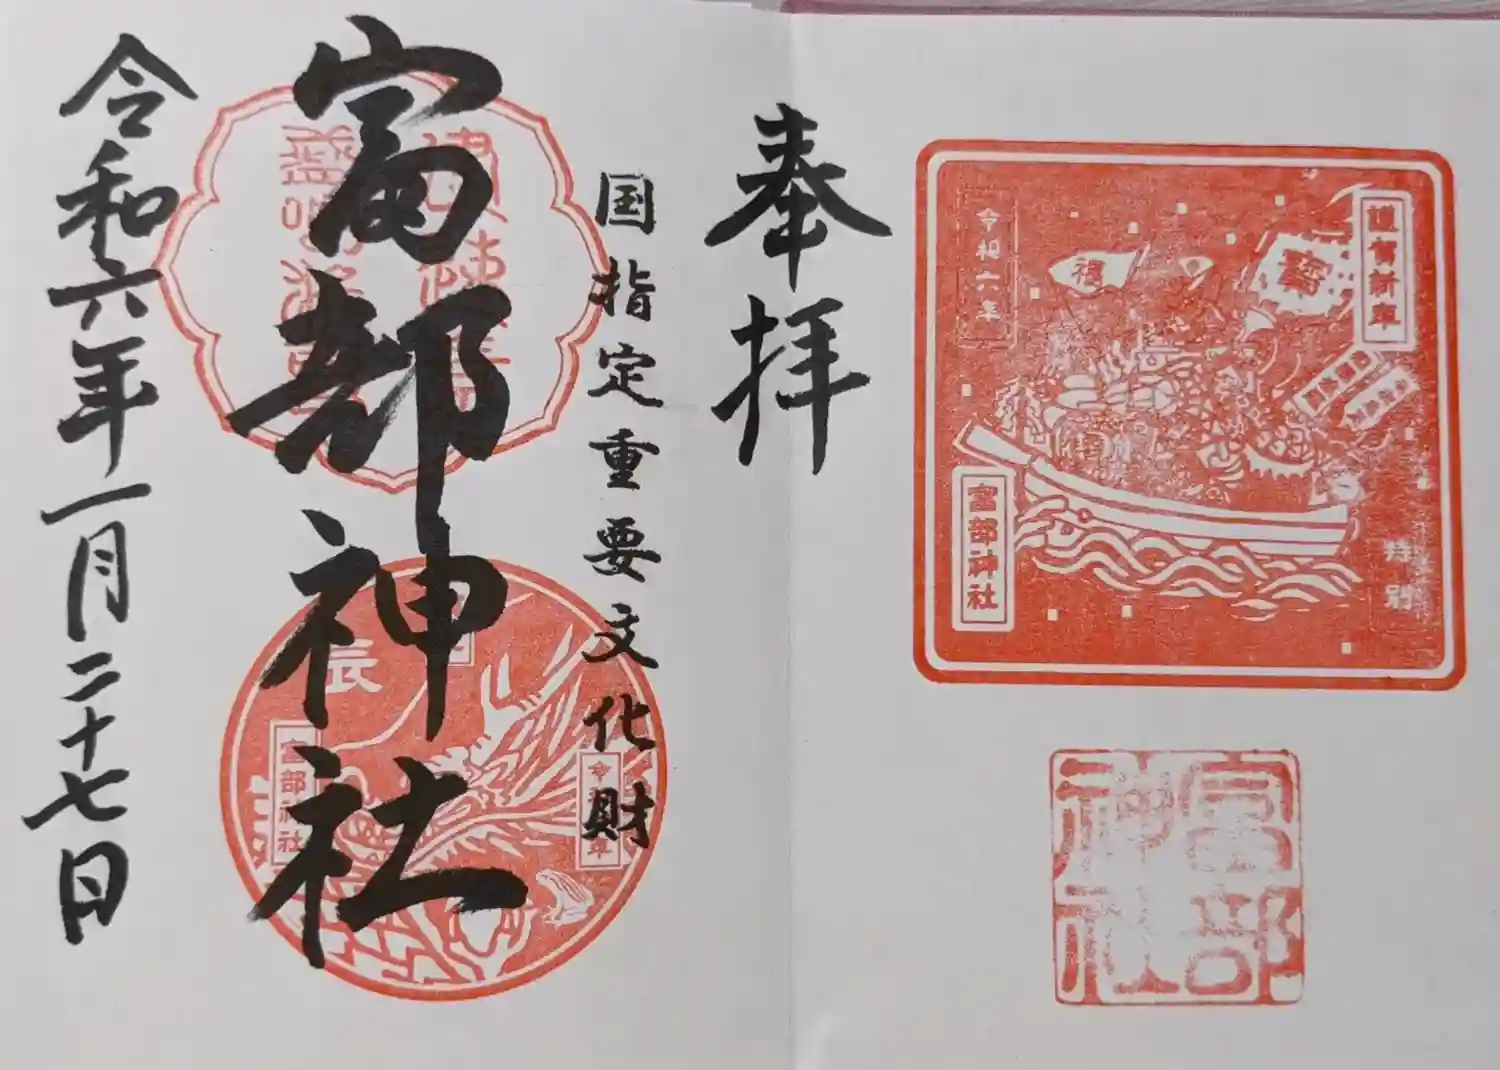 謹賀新年
令和六年
福
特別
富部神社
富部神社
奉拝
国指定重要文化財
富部神社
令和六年一月二十七日
辰
富部神社